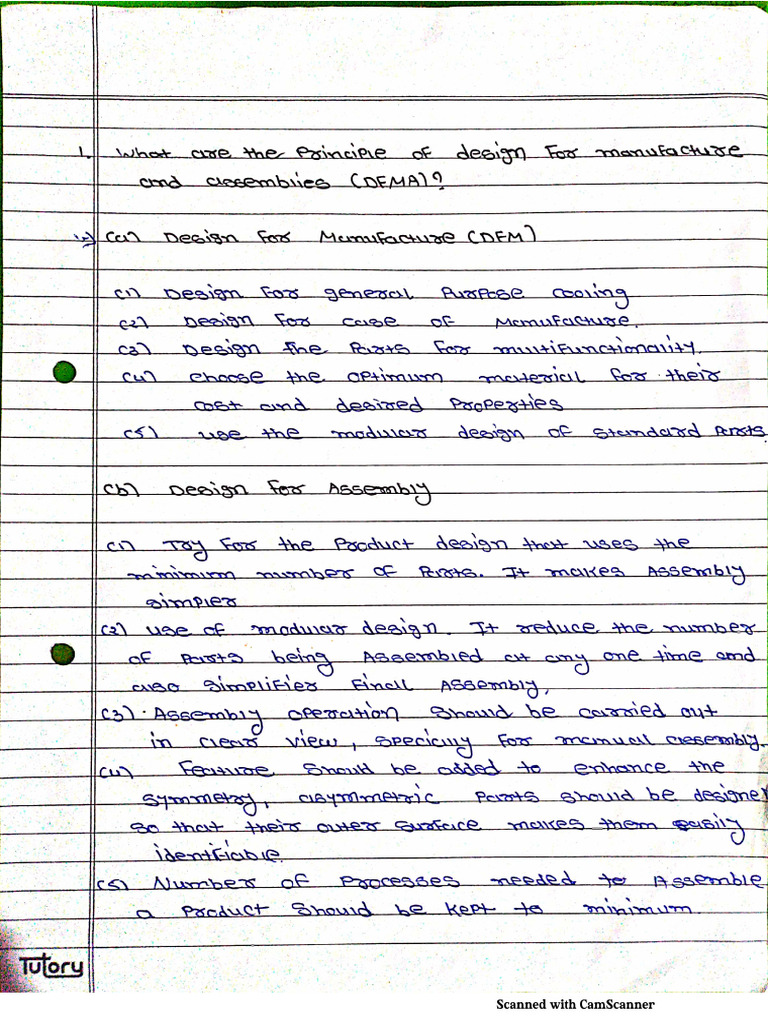 1. What are the Principle of design For manufacture
and assemblies (DFMA)?
(a) Design For Manufacture (DFM)
(1) Design For general Purpose cooling
(2) Design For case of Manufacture.
(3) Design the Parts for multifunctionality.
(4) choose the optimum material for their
cost and desired Properties
(5) use the modular design of standard Parts.
(b) Design for Assembly
(1) Try for the Product design that uses the
minimum number of Parts. It makes Assembly
simpler
(2) use of modular design. It reduce the number
of Parts being Assembled at any one time and
also simplifier Finall Assembly,
(3) Assembly operation should be carried out
in clear view, specially for manual assembly.
(4) Feature should be added to enhance the
symmetry, asymmetric Parts should be designe
so that their outer surface makes them easily
identifiable.
(5) Number of Processes needed to Assemble
a Product should be kept to minimum.
Tutory
Scanned with CamScanner